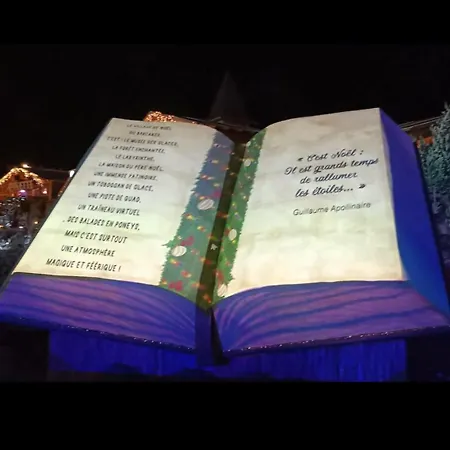 LE VILLAGE DE NOËL
DU BARCARÈS,
C'EST : LE MUSÉE DES GLACES,
LA FORÊT ENCHANTÉE,
LE LABYRINTHE,
LA MAISON DU PÈRE-NOËL,
UNE IMMENSE PATINOIRE,
UN TOBOGGAN DE GLACE,
UNE PISTE DE QUAD,
UN TRAÎNEAU VIRTUEL
, DES BALADES EN PONEYS,
MAIS C'EST SURTOUT
UNE ATMOSPHÈRE
MAGIQUE ET FÉÉRIQUE !
« C'est Noël :
Il est grands temps
de rallumer
les étoiles... »
Guillaume Apollinaire